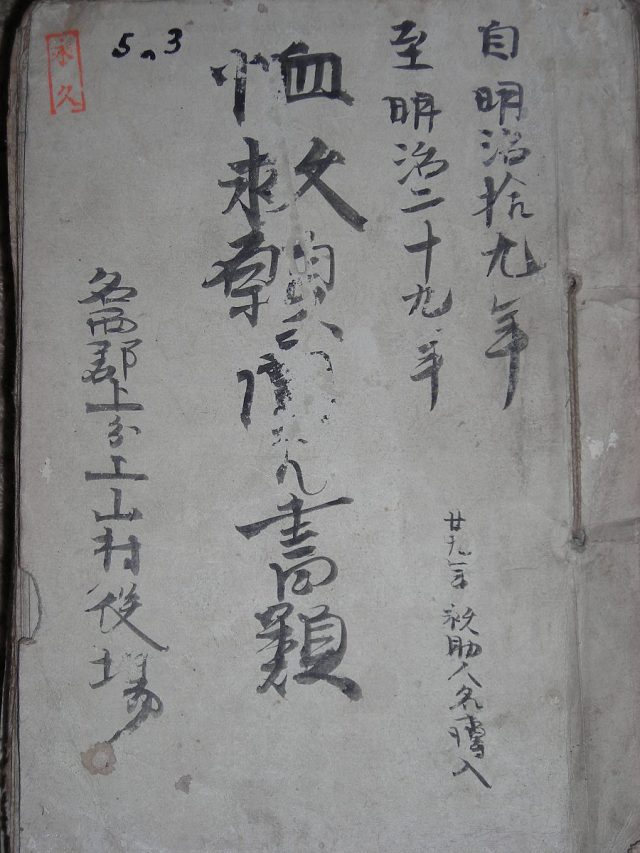 自明治拾九年
至明治二十九年
廿九年 救助人名簿入
恤救願ニ関スル書類
名西郡上分上山村役場
永久
5n3